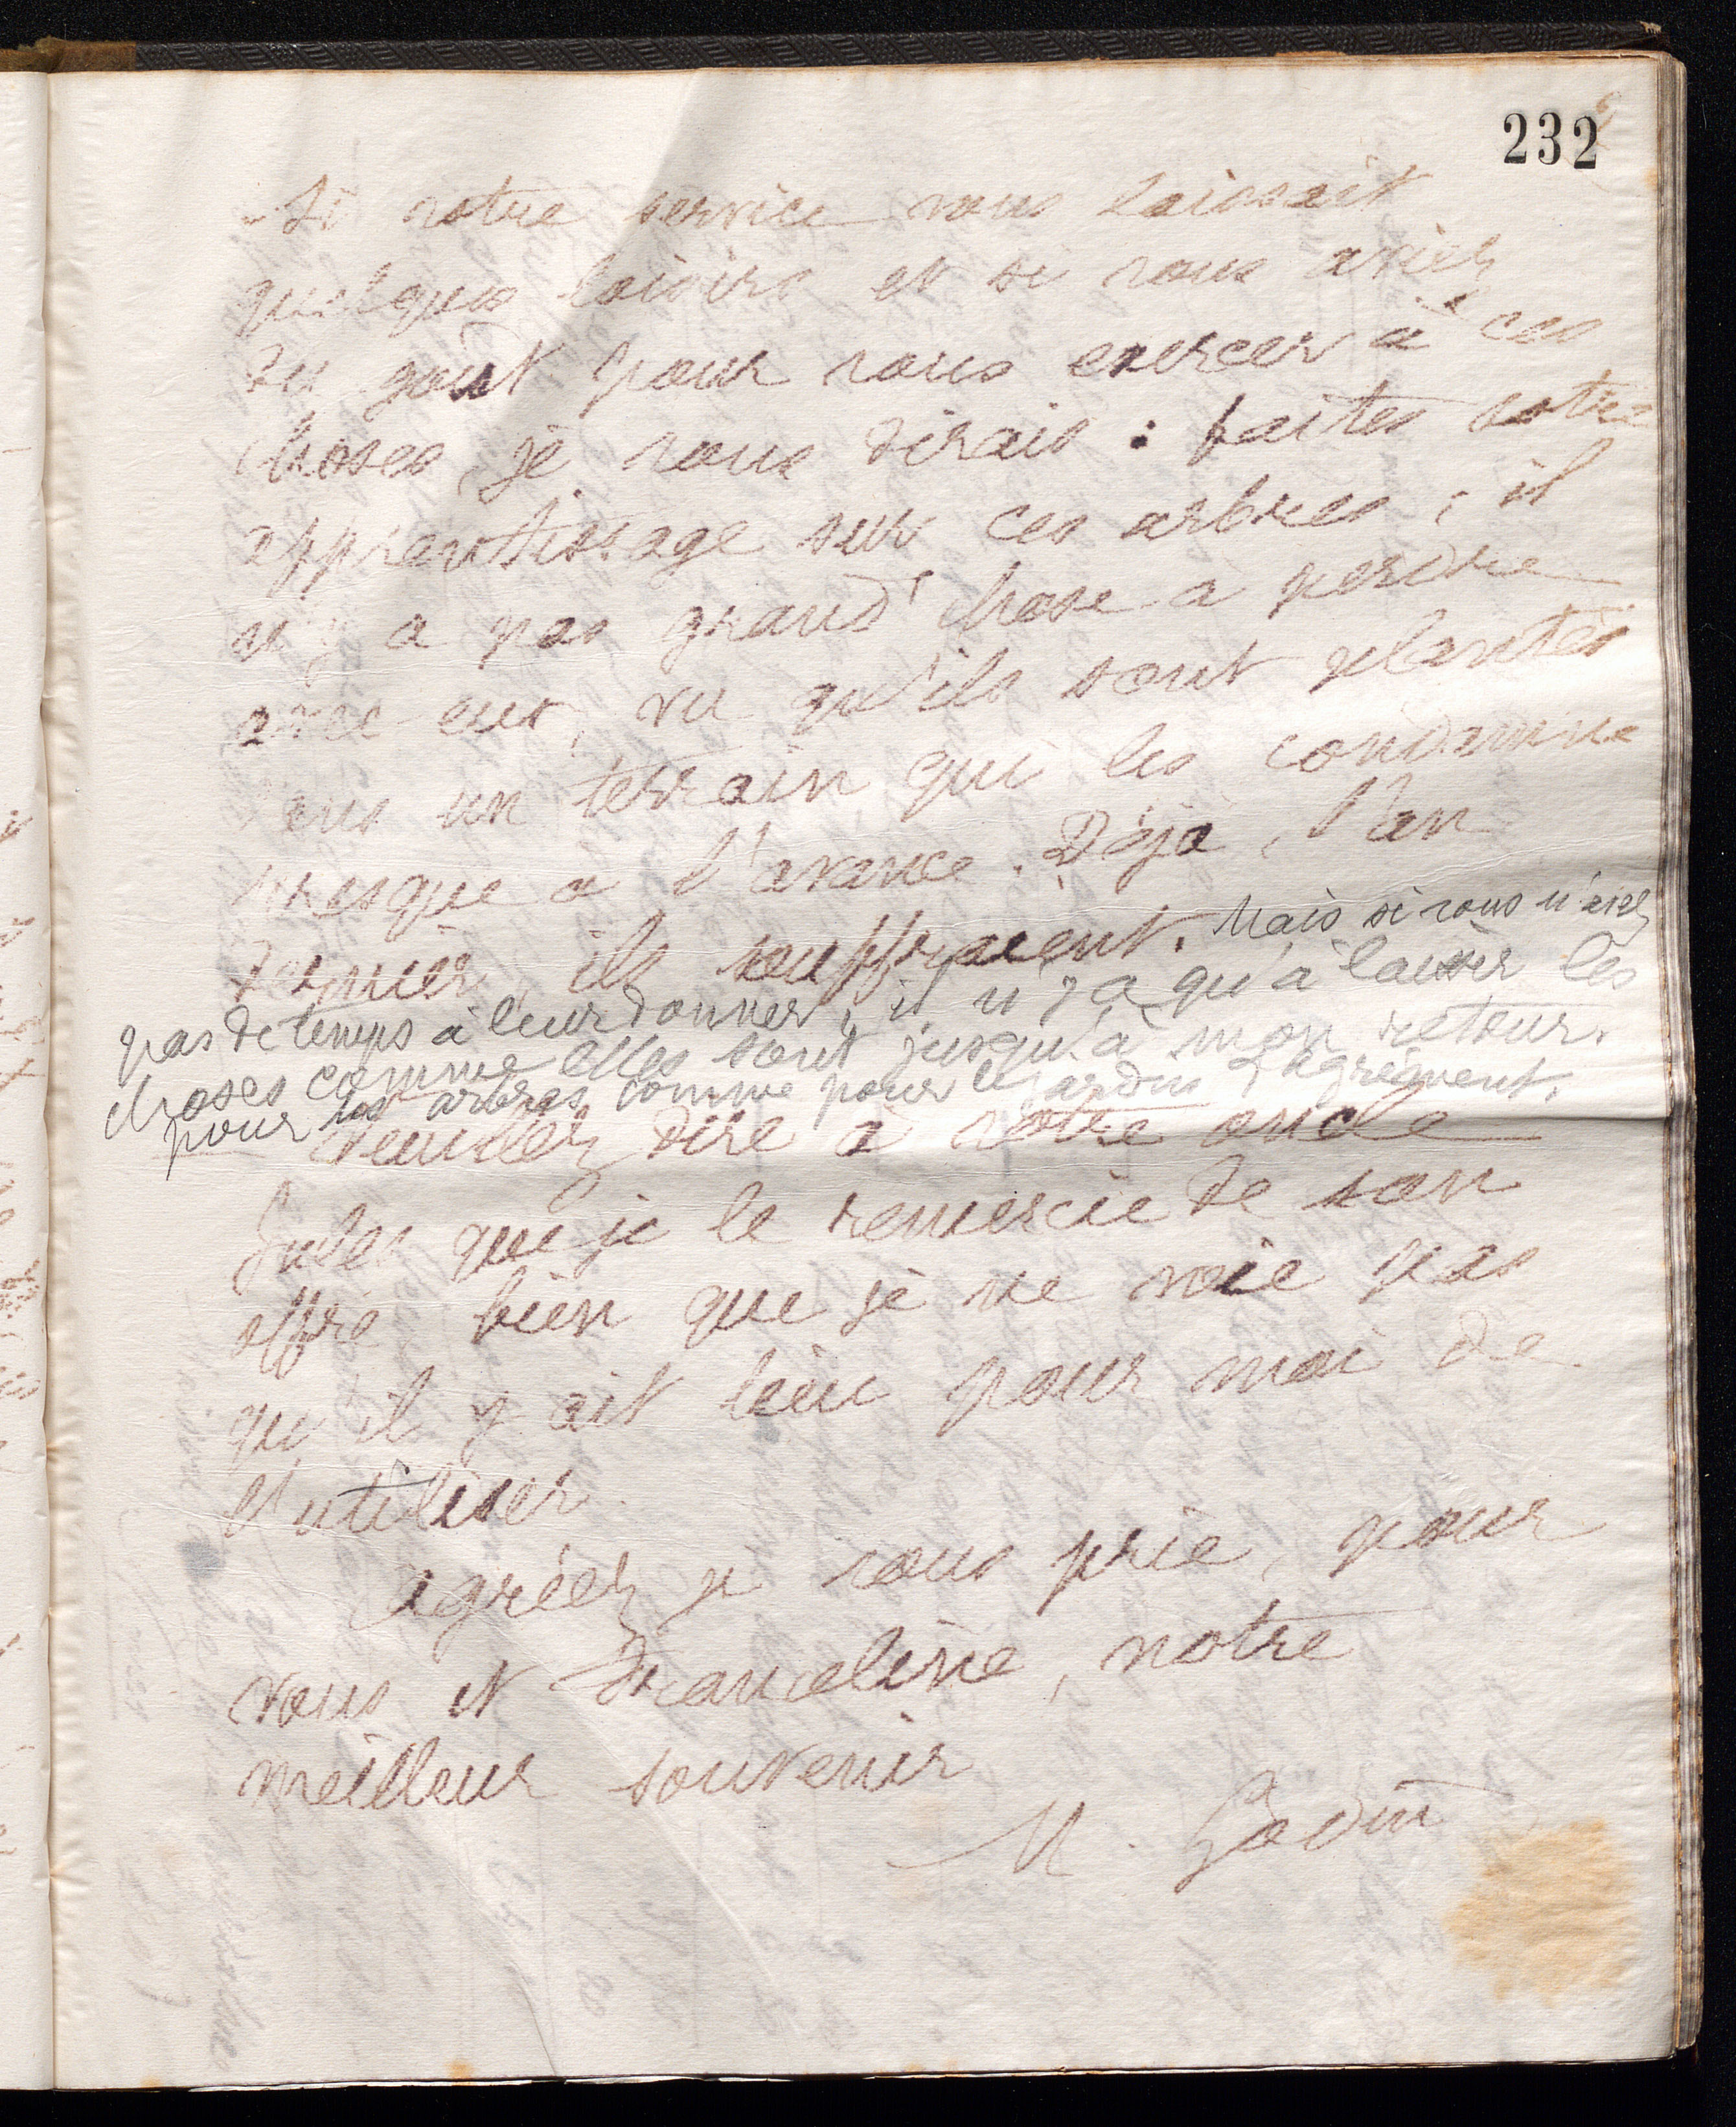 232
Si votre service vous laissait
quelques loisirs et si vous aviez
du goût pour vous exercer à ces
choses, je vous dirais : faites votre
apprentissage sur ces arbres, il
n'y a pas grand'chose à perdre
avec eux, vu qu'ils sont plantés
dans un terrain qui les condamne
presque à l'avance. Déjà, l'an
dernier, ils souffraient. Mais si vous n'avez
pas de temps à leur donner, il n'y a qu'à laisser les
choses comme elles sont jusqu'à mon retour.
pour les arbres comme pour le jardin d'agrément.
Veuillez dire à votre oncle
Jules que je le remercie de son
offre, bien que je ne voie pas
qu'il y ait lieu pour moi de
l'utiliser.
Agréez, je vous prie, pour
vous et Franceline, notre
meilleur souvenir
M. Godin